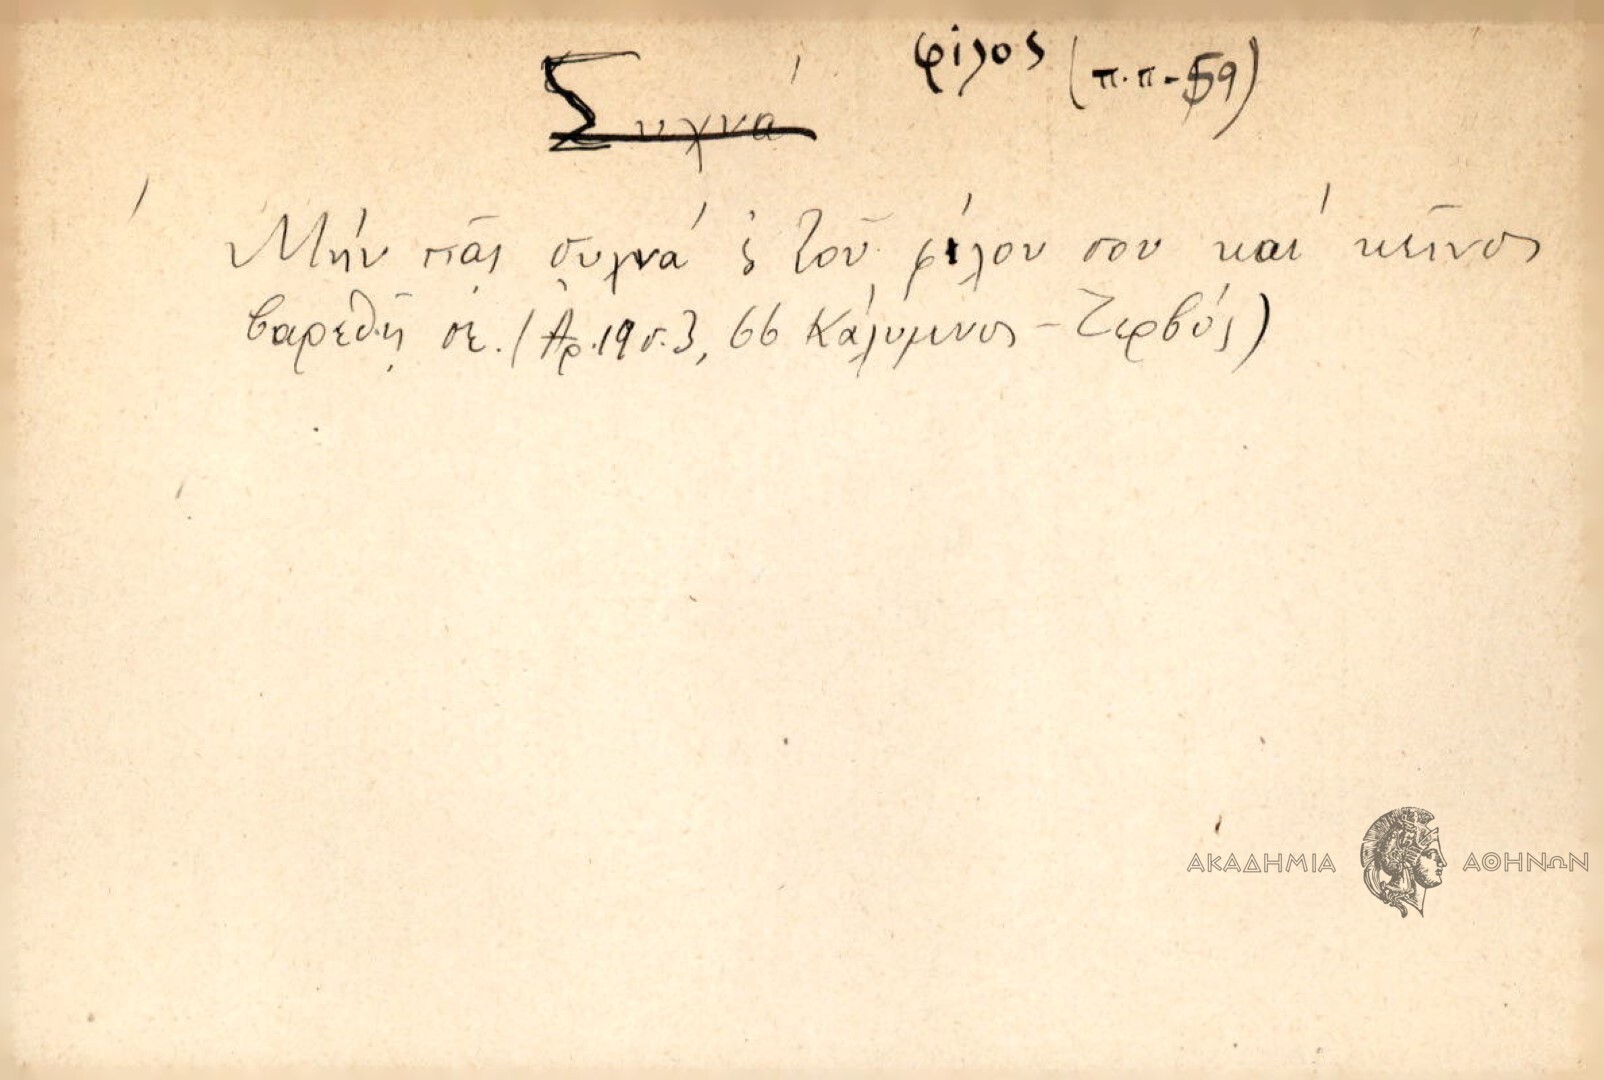 Συχνά φίλος (π.π-59)
Μήν πᾶς συχνά ς τοῦ φίλου σου καί κεῖνος
βαρεθῇ σε. (Ἀρ. 19 σ. 3, 66 Κάλυμνος - Ζερβός)
ΑΚΑΔΗΜΙΑ ΑΘΗΝΩΝ